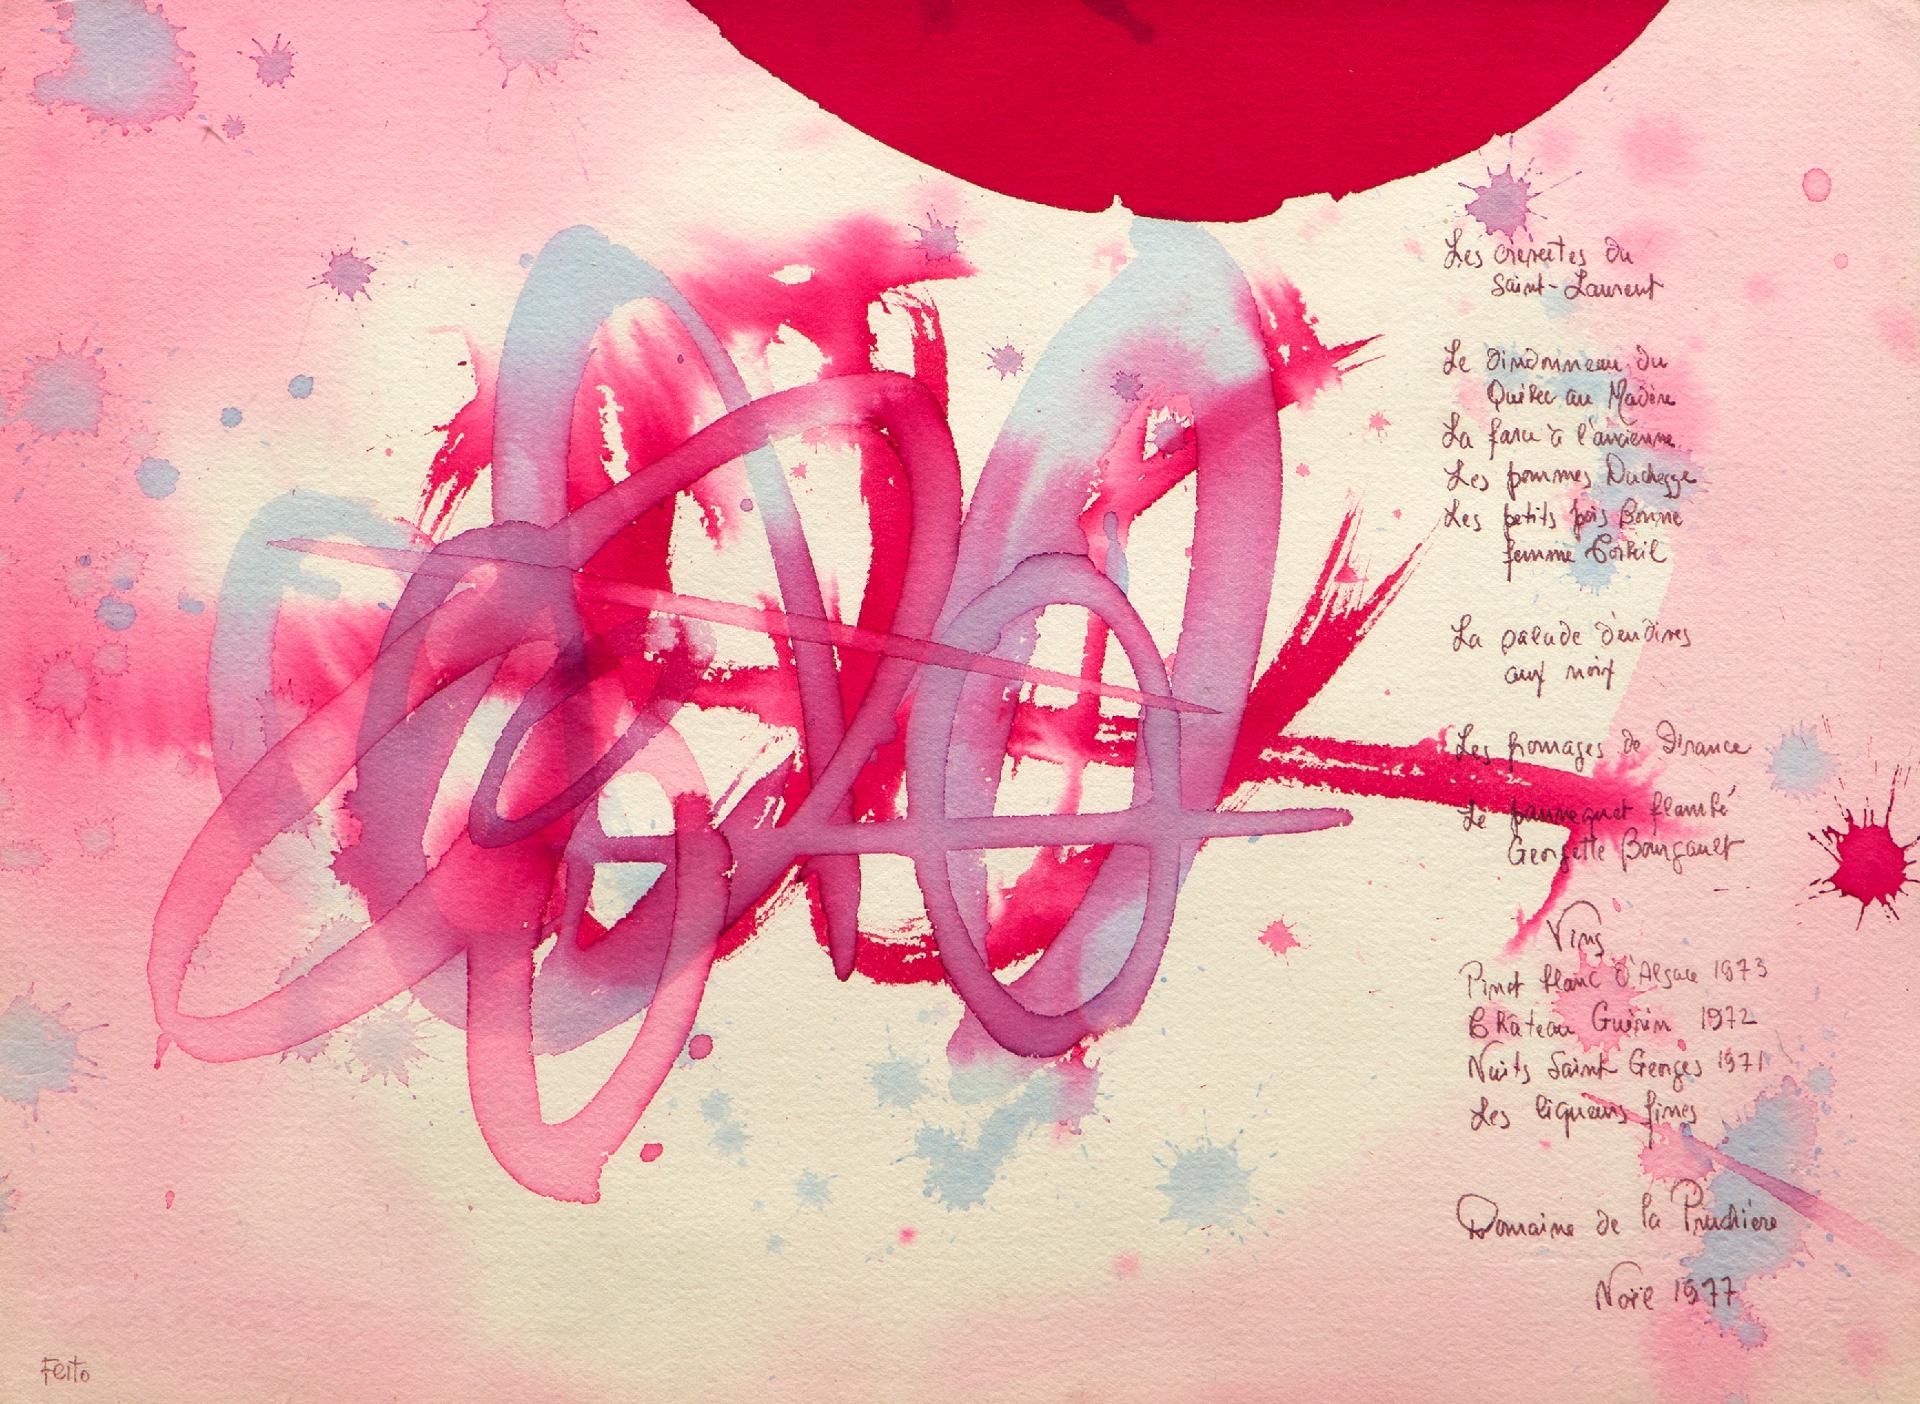 Les crevettes du
Saint-Laurent
Le dindonneau du
Québec au Madère
La farce à l'ancienne
Les pommes Duchesse
Les petits pois Bonne
femme Corbeil
La salade d'endives
aux noix
Les fromages de France
Le pannequet flambé
Georgette Bourgault
Vins
Pinot blanc d'Alsace 1973
Château Guérin 1972
Nuits Saint-Georges 1971
Les liqueurs fines
Domaine de la Pruchière
Noël 1977
Feito